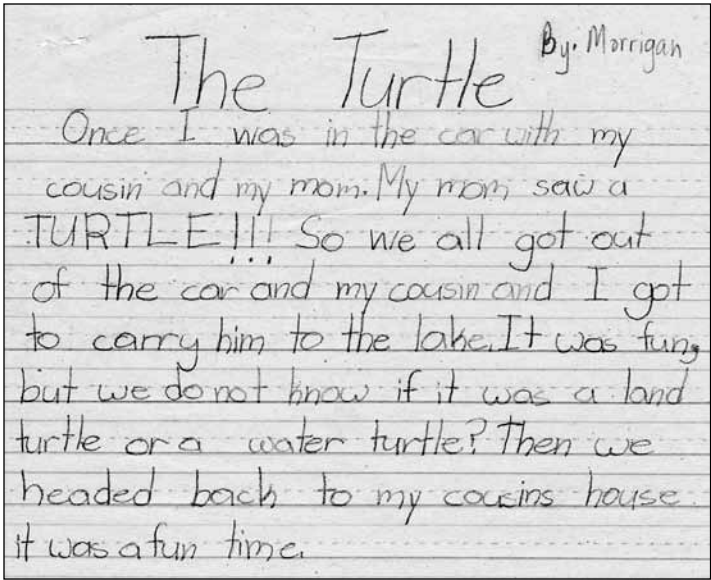 The Turtle By. Morrigan
Once I was in the car with my
cousin and my mom. My mom saw a
TURTLE!!! So we all got out
of the car and my cousin and I got
to carry him to the lake. It was fun,
but we do not know if it was a land
turtle or a water turtle? Then we
headed back to my cousins house
it was a fun time.